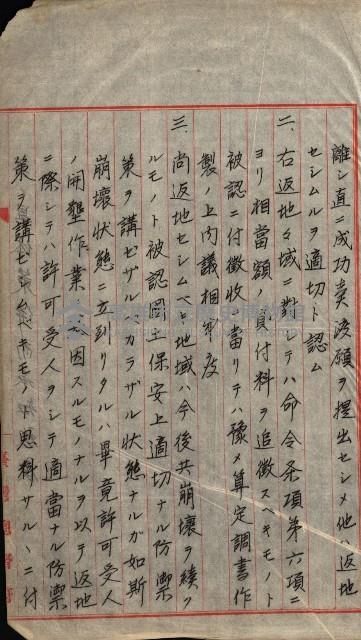 離シ直ニ成功賣渡願ヲ提出セシメ他ハ返地
セシムルヲ適切ト認ム
二、右返地々域ニ對シテハ命令条項第六項ニ
ヨリ相當額ノ貸付料ヲ追徴スヘキモノト
被認ニ付徴收ニ當リテハ豫メ算定調書作
製ノ上內議相成度
三、尚返地セシムヘキ地域ハ今後共崩壞ヲ續ク
ルモノト被認國土保安上適切ナル防禦
策ヲ講セザルヘカラザル狀態ナルガ如斯
崩壞狀態ニ立到リタルハ畢竟許可受人
ノ開墾作業ニ因スルモノナルヲ以テ返地
ニ際シテハ許可受人ヲシテ適當ナル防禦
策ヲ講ゼシムベキモノト思料サルヽニ付
臺灣總督府